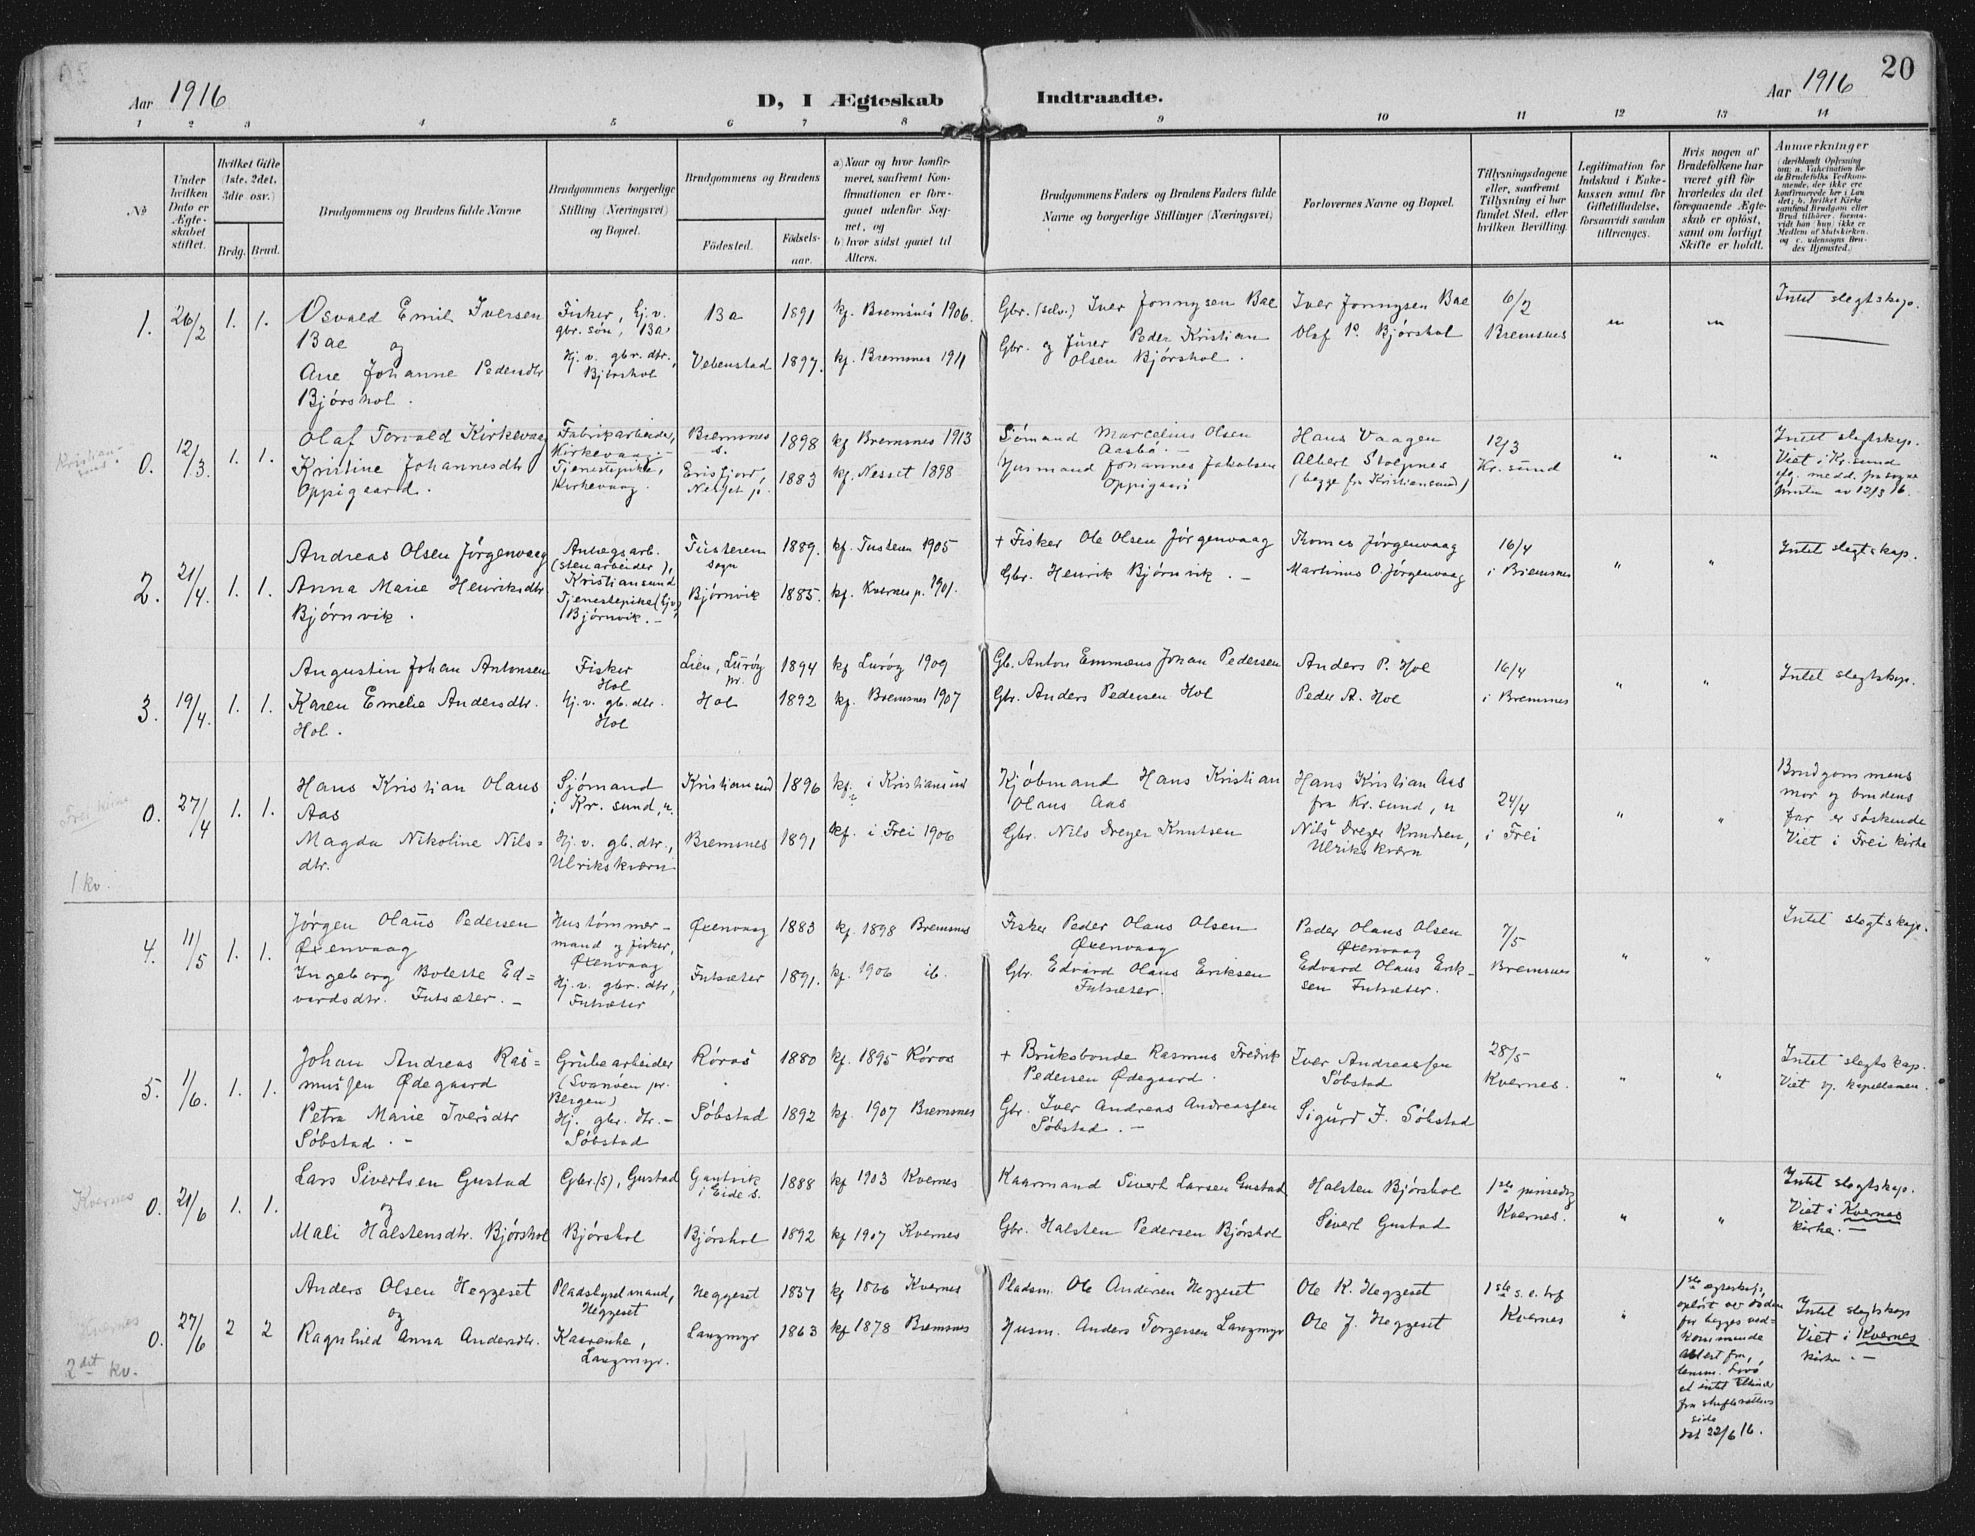 20
Aar 1916
D, I Ægteskab Indtraadte.
Aar 1916
1 2 3 4 5 6 7 8 9 10 11 12 13 14
No
Under hvilken Dato er Ægteskabet stiftet.
Hvilket Gifte (1ste, 2det, 3die osv.)
Brdg. Brud.
Brudgommens og Brudens fulde Navne
Brudgommens borgerlige Stilling (Næringsvei) og Bopæl.
Brudgommens og Brudens
Fødested.
Fødselsaar.
a) Naar og hvor konfirmeret, saafremt Konfirmationen er foregaaet udenfor Sognet, og
b) hvor sidst gaaet til Alters.
Brudgommens Faders og Brudens Faders fulde Navne og borgerlige Stillinger (Næringsvei)
Forlovernes Navne og Bopæl.
Tillysningsdagene eller, saafremt Tillysning ei har fundet Sted, efter hvilken Bevilling.
Legitimation for Indskud i Enkekassen samt for Giftetilladelse, forsaavidt saadan tiltrænges.
Hvis nogen af Brudefolkene har været gift før hvorledes da det foregaaende Ægteskab er opløst, samt om lovligt Skifte er holdt.
Anmærkninger
1. 26/2 1. 1.
Osvald Emil Iversen
Bae
og
Ane Johanne Pedersdtr
Bjørshol.
Fisker, hj. v.
gbr. søn, Bae
Hj. v. gbr. dtr,
Bjørshol
Bae 1891 kf. Bremsnes 1906.
Vebenstad 1897. kf. Bremsnes 1911
Gbr. (selv.) Iver Jonnysen Bae
Gbr. og fürer Peder Kristian
Olsen Bjørshol.
Iver Jonnysen Bae
Olaf P. Bjørshol
6/2
Bremsnes
"
"
Intet slegtskap.
Kristiansund.
0. 12/3. 1. 1.
Olaf Torvald Kirkevaag
Kristine Johannesdtr
Oppigaard.
Fabrikarbeider,
Kirkevaag.
Tjenestepike,
Kirkevaag.
Bremsnes
s. 1898 kf Bremsnes 1913
Erisfjord,
Nesset p. 1883 kf. Nesset 1898
Sjømand Marcelius Olsen
Aasbø. -
Husmand Johannes Jakobsen
Oppigaard
Hans Vaagen
Albert Stolpnes
(begge fra Kristiansund)
12/3
Kr. sund
"
"
Intet slegtskap.
Viet i Kr. sund
iflg. medd. fra sogne
presten av 12/3 16.
2. 21/4. 1. 1.
Andreas Olsen Jørgenvaag
Anna Marie Henriksdtr
Bjørnvik.
Anlegsarb.
(stenarbeider),
Kristiansund
Tjenestepike (hj.v)
Bjørnvik. -
Tusteren
sogn 1889. kf. Tustern 1905
Bjørnvik 1885. kf. Kvernes p. 1901.
+ Fisker Ole Olsen Jørgenvaag
Gbr. Henrik Bjørnvik. -
Thomas Jørgenvaag
Martinus O. Jørgenvaag
16/4
i Bremsnes
"
"
Intet slegtskap.
3. 19/4. 1. 1.
Augustin Johan Antonsen
Karen Emelie Andersdtr.
Hol.
Fisker
Hol
Hj. v. gb. dtr.
Hol
Lien, Lurøy
pr. 1894 kf Lurøy 1909
Hol 1892 kf. Bremsnes 1907
Gb. Anton Emmæus Johan Pedersen
Gbr. Anders Pedersen Hol
Anders P. Hol
Peder A. Hol
16/4
i Bremsnes
"
"
Intet slegtskap.
Frei kirke
0. 27/4 1. 1.
Hans Kristian Olaus
Aas
Magda Nikoline Nils-
dtr.
Sjømand
i Kr. sund, N.
Hj. v. gb. dtr,
Ulrikskværn
Kristiansund 1896 kf. i Kristiansund
Bremsnes 1891 kf. i Frei 1906
Kjøbmand Hans Kristian
Olaus Aas
Gbr. Nils Dreyer Knutsen
Hans Kristian Aas
fra Kr. sund, N
Nils Dreyer Knudsen,
Ulrikskværn
24/4
i Frei
"
"
Brudgommens
mor og brudens
far er søskende
Viet i Frei kirke
1 kv.
4. 11/5 1. 1.
Jørgen Olaüs Pedersen
Øxenvaag
Ingeborg Bolette Ed-
vardsdtr. Futsæter. -
Hustømmer-
mand og fisker,
Øxenvaag
Hj. v. gbr. dtr,
Futsæter
Øxenvaag 1883 kf. 1898 Bremsnes
Futsæter 1891. kf. 1906 ib.
Fisker Peder Olaus Olsen
Øxenvaag
Gbr. Edvard Olaus Eriksen
Futsæter.
Peder Olaus Olsen
Øxenvaag
Edvard Olaus Erik-
sen Futsæter.
7/5
Bremsnes
"
"
Intet slegtskap.
5. 1/6. 1. 1.
Johan Andreas Ras-
mussen Ødegaard
Petra Marie Iversdtr
Søbstad. -
Grübearbeider
(Svanøen pr.
Bergen)
Hj. gbr. dtr. -
Søbstad
Røros 1880 kf. 1895 Røros
Søbstad 1892 kf. 1907 Bremsnes
+ Brüksbonde Rasmus Fredrik
Pedersen Ødegaard.
Gbr. Iver Andreas Andreassen
Søbstad. -
Iver Andreassen
Søbstad
Sigurd I. Søbstad
28/5
Kvernes.
"
"
Intet slegtskap.
Viet v. kapellanen.
Kvernes
0. 21/6 1. 1.
Lars Sivertsen Gustad
og
Mali Halstensdtr. Bjørshol
Gbr. (s), Gustad
Bjørshol
Gautvik
i Eide s. 1888 kf 1903 Kvernes
Bjørshol 1892 kf 1907 Kvernes
Kaarmand Sivert Larsen Gustad
Gbr. Halsten Pedersen Bjørshol
Halsten Bjørshol
Sivert Gustad
1ste pinsedag
Kvernes.
"
"
Intet slegtskap.
Viet i Kvernes
kirke. -
Kvernes
0. 27/6 2 2
Anders Olsen Heggeset
og
Ragnhild Anna Andersdtr.
Pladsbyselmand,
Heggeset
Kaarenke,
Langmyr.
Heggeset 1837 kf 1866 Kvernes
Langmyr 1863 kf 1878 Bremsnes
Pladsm. Ole Andersen Heggeset
Husm. Anders Torgersen Langmyr
Ole K. Heggeset
Ole J. Heggeset
1ste s. e. tref
Kvernes
"
1ste egteskap
opløst av døden
for begges ved-
kommende
Attest fra
lensm.
et intet tilhinder
fra skifterettens
side
dat 22/6 16.
Intet slegtskap
Viet i Kvernes
kirke. -
2det kv.